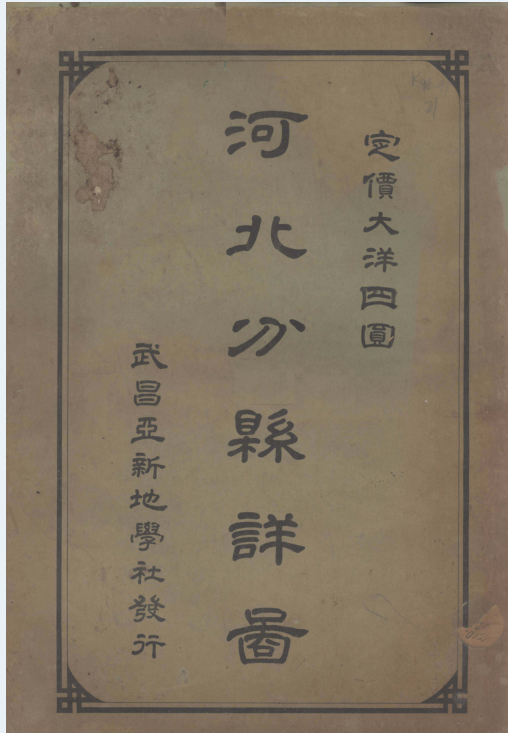 定價大洋四圓
河北分縣詳圖
武昌亞新地學社發行